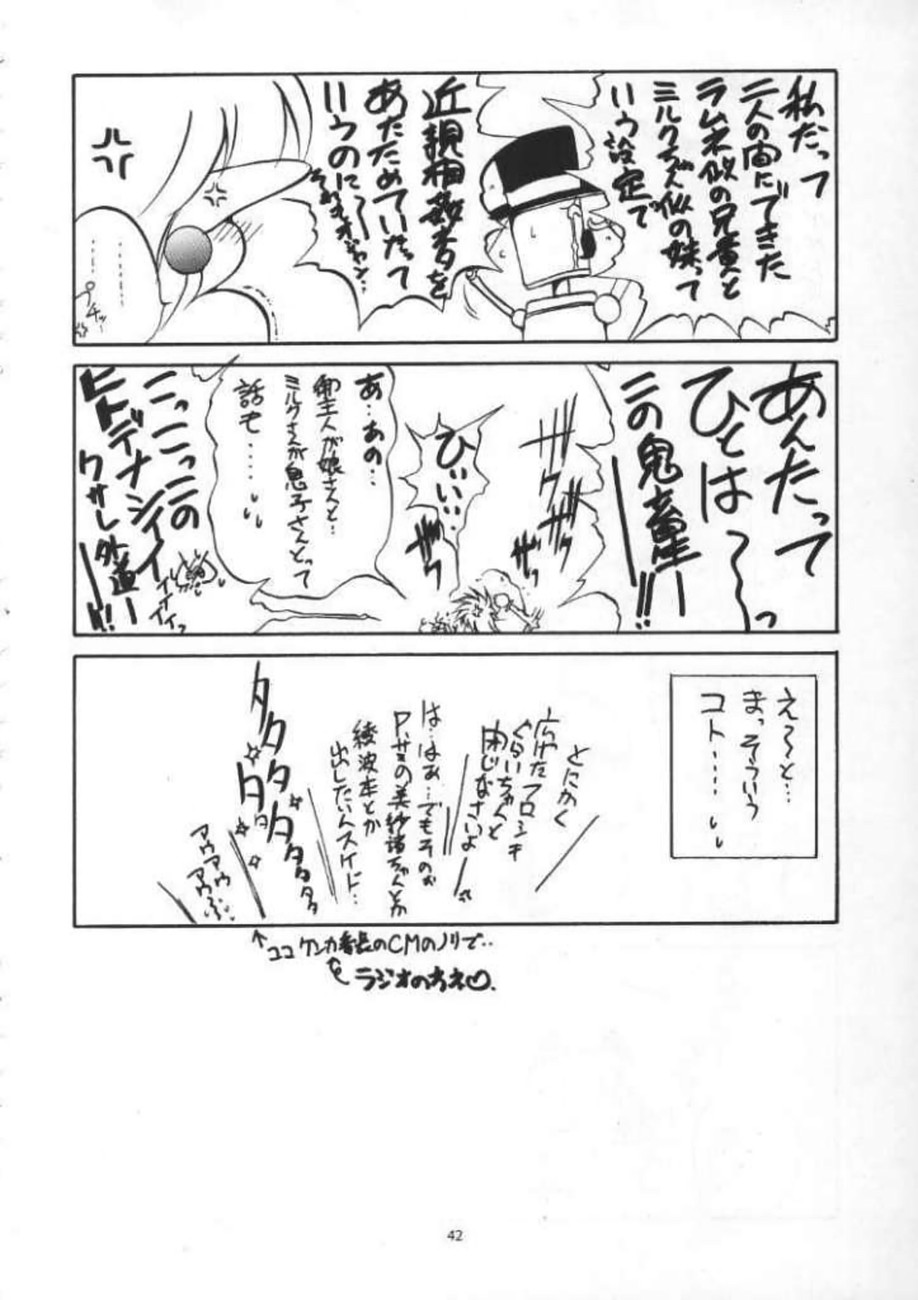 私だって
二人の間にできた
ラムネ似の兄貴と
ミルクちゃん似の妹って
いう設定で
近親相姦本を
あたためていたって
いうのに〜
………
………
プチッ…
あんたって
ひとは〜っ
この鬼畜ー!!
ザクッ
ひいい…
ザク
ザクッ
ザク
あ…あの…
御主人が娘さんと…
ミルクさんが息子さんとって
話も……
こっこっこの
ヒトデナシイイ
クサレ外道ー!!
イイイイッ
え〜と…
まっそういう
コト……
とにかく
広げたフロシキ
ぐらいちゃんと
閉じなさいよ
は…はあ…でもそのお
綾波本とか
出したいんスケド…
タタタタタタタタ
アウアウ
アウ
↑ココケンカ番長のCMのノリで‥
ラジオのネ♡.
42